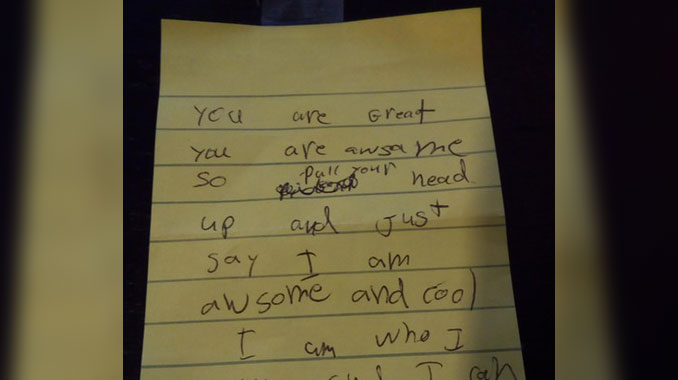 you are Great
you are awsame
so pull your head
up and Just
say I am
awsome and cool
I am who I
and I can